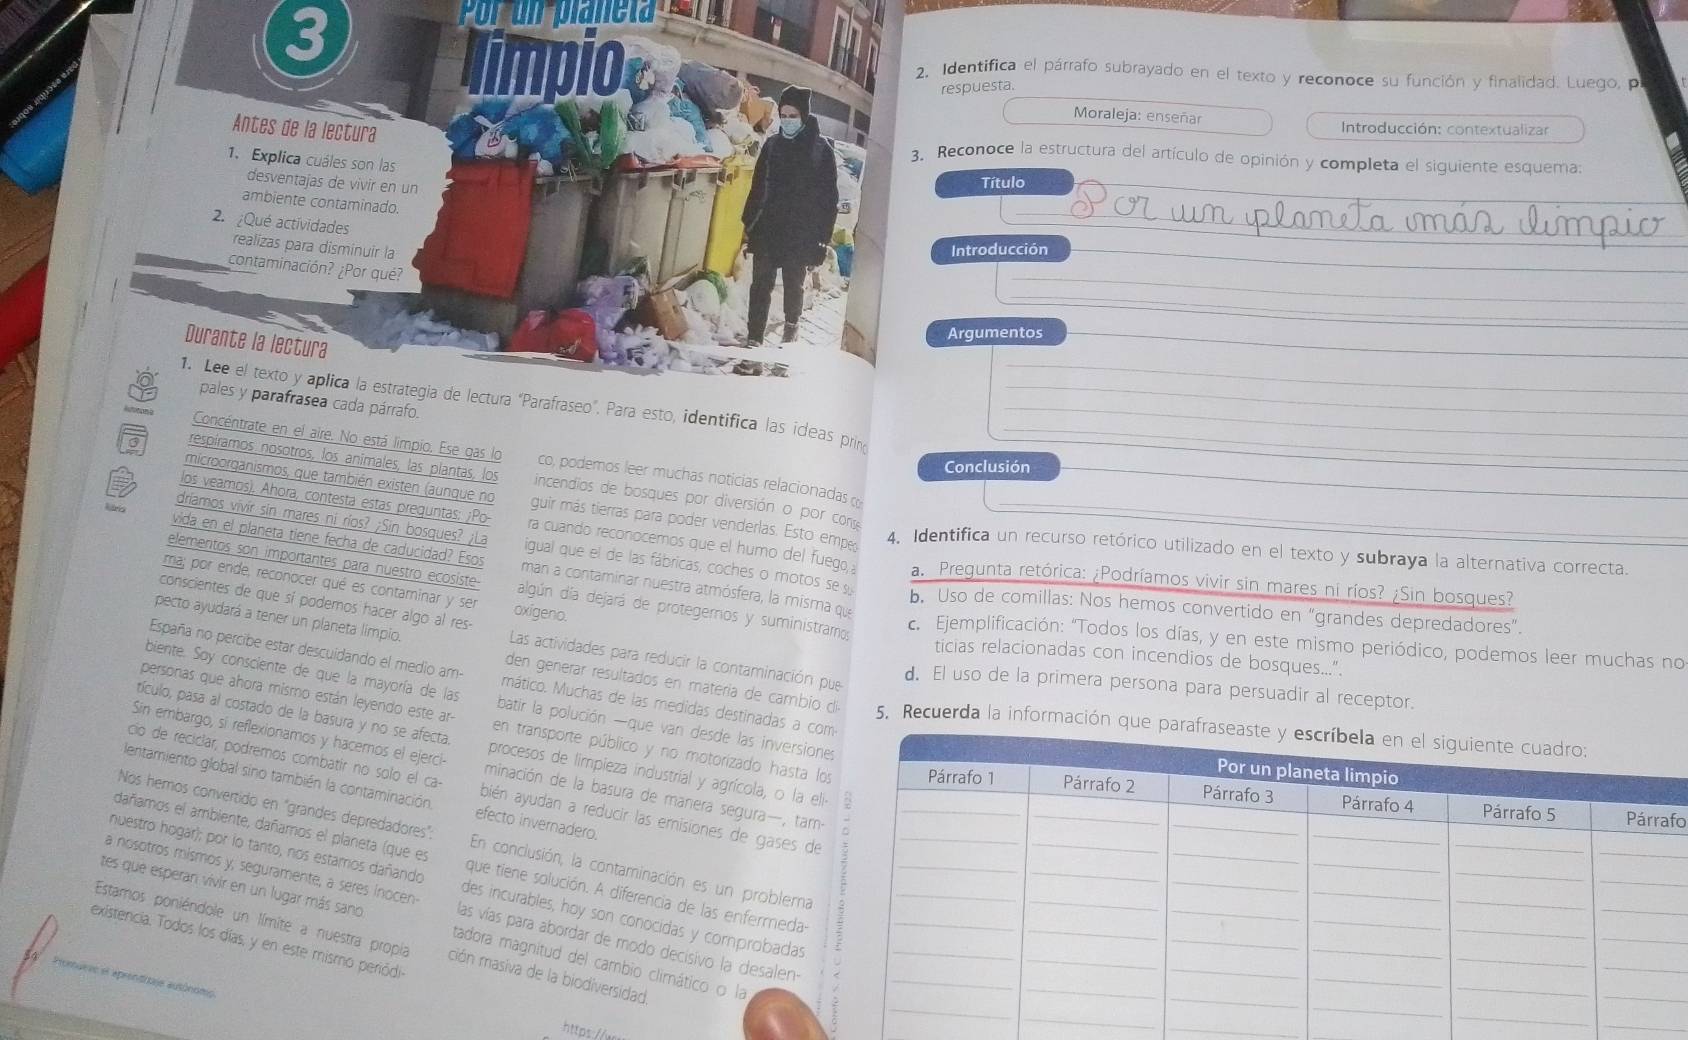 3
Por un planeta
limpio
Antes de la lectura
1. Explica cuáles son las
desventajas de vivir en un
ambiente contaminado.
2. ¿Qué actividades
realizas para disminuir la
contaminación? ¿Por qué?
Durante la lectura
1. Lee el texto y aplica la estrategia de lectura "Parafraseo". Para esto, identifica las ideas princ
pales y parafrasea cada párrafo.
Autonomía
Rúbrica
Concéntrate en el aire. No está limpio. Ese gas lo
respiramos nosotros, los animales, las plantas, los
microorganismos, que también existen (aunque no
los veamos). Ahora, contesta estas preguntas: ¿Po-
dríamos vivir sin mares ni ríos? ¿Sin bosques? ¿La
vida en el planeta tiene fecha de caducidad? Esos
elementos son importantes para nuestro ecosiste-
ma; por ende, reconocer qué es contaminar y ser
conscientes de que sí podemos hacer algo al res-
pecto ayudará a tener un planeta limpio.
España no percibe estar descuidando el medio am-
biente. Soy consciente de que la mayoría de las
personas que ahora mismo están leyendo este ar-
tículo, pasa al costado de la basura y no se afecta.
Sin embargo, si reflexionamos y hacemos el ejerci-
cio de reciclar, podremos combatir no solo el ca-
lentamiento global sino también la contaminación.
Nos hemos convertido en "grandes depredadores":
dañamos el ambiente, dañamos el planeta (que es
nuestro hogar); por lo tanto, nos estamos dañando
a nosotros mismos y, seguramente, a seres inocen-
tes que esperan vivir en un lugar más sano.
Estamos poniéndole un límite a nuestra propia
existencia. Todos los días, y en este mismo periódi-
co, podemos leer muchas noticias relacionadas co
incendios de bosques por diversión o por conse
guir más tierras para poder venderlas. Esto empeo
ra cuando reconocemos que el humo del fuego, a
igual que el de las fábricas, coches o motos se su
man a contaminar nuestra atmósfera, la misma que
algún día dejará de protegernos y suministrarnos
oxígeno.
Las actividades para reducir la contaminación pue-
den generar resultados en materia de cambio cli-
mático. Muchas de las medidas destinadas a com-
batir la polución —que van desde las inversiones
en transporte público y no motorizado hasta los
procesos de limpieza industrial y agrícola, o la eli-
minación de la basura de manera segura—, tam-
bién ayudan a reducir las emisiones de gases de
efecto invernadero.
En conclusión, la contaminación es un problema
que tiene solución. A diferencia de las enfermeda-
des incurables, hoy son conocidas y comprobadas
las vías para abordar de modo decisivo la desalen-
tadora magnitud del cambio climático o la
ción masiva de la biodiversidad.
https://w
Promueve el aprendizaje autónomo.
Corefo S. A. C. Prohibido reproducir. D. L. 822
2. Identifica el párrafo subrayado en el texto y reconoce su función y finalidad. Luego, p
respuesta.
Moraleja: enseñar
Introducción: contextualizar
3. Reconoce la estructura del artículo de opinión y completa el siguiente esquema:
Título
Por un planeta más limpio
Introducción
Argumentos
Conclusión
4. Identifica un recurso retórico utilizado en el texto y subraya la alternativa correcta.
a. Pregunta retórica: ¿Podríamos vivir sin mares ni ríos? ¿Sin bosques?
b. Uso de comillas: Nos hemos convertido en "grandes depredadores".
c. Ejemplificación: "Todos los días, y en este mismo periódico, podemos leer muchas no
ticias relacionadas con incendios de bosques...".
d. El uso de la primera persona para persuadir al receptor.
5. Recuerda la información que parafraseaste y escríbela en el siguiente cuadro:
Por un planeta limpio
Párrafo 1 Párrafo 2 Párrafo 3 Párrafo 4 Párrafo 5 Párrafo